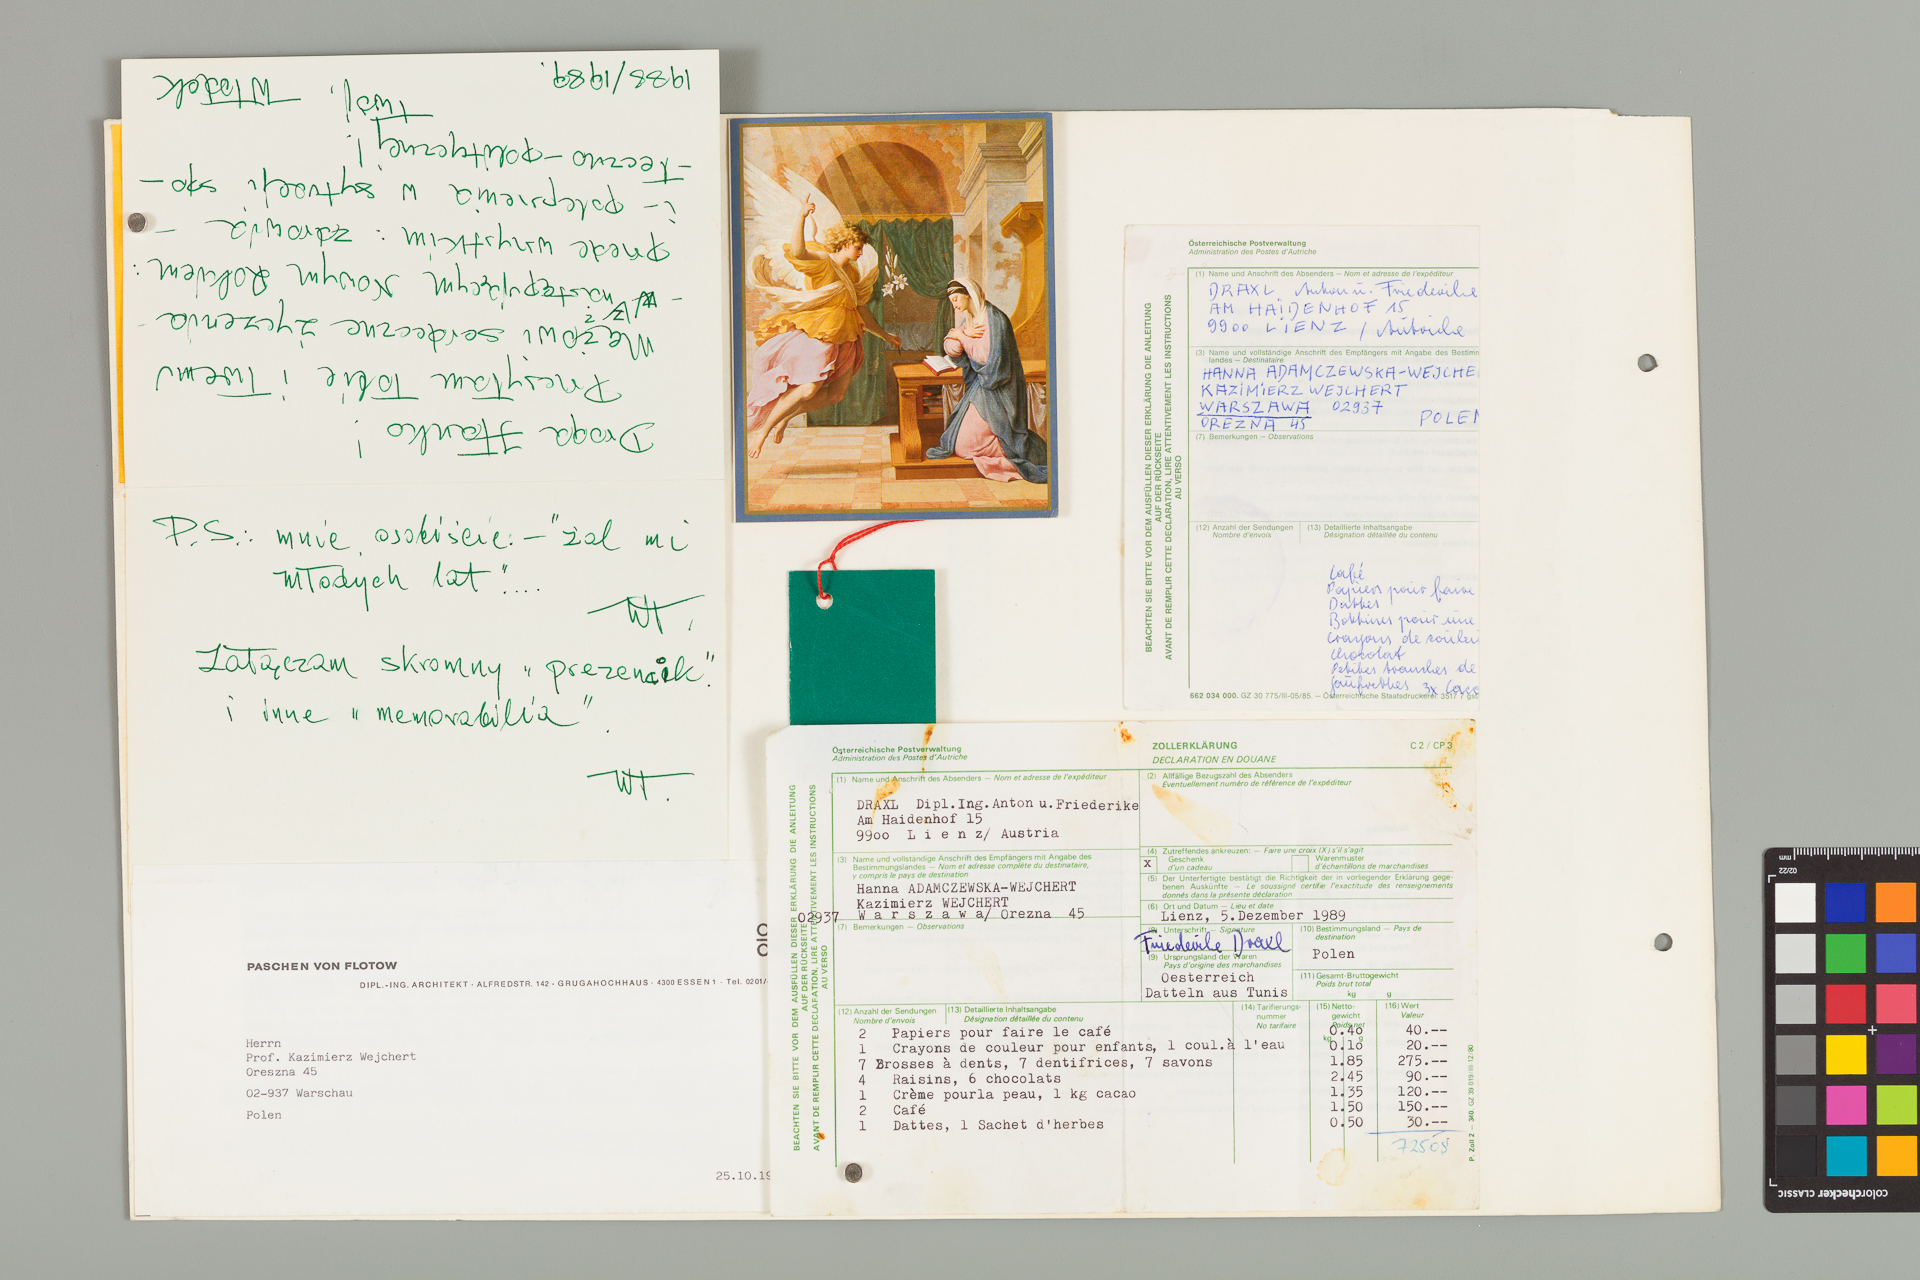 Droga Hanko!
Przesyłam Tobie i Twemu
Mężowi serdeczne życzenia
z następującym Nowym Rokiem:
przede wszystkim: zdrowia -
i - polepszenia w sytuacji spo-
-łeczno-politycznej!
Twój,
1988/1989. Włodek
P.S.: mnie osobiście: - "żal mi
młodych lat"....
WH.
Załączam skromny "prezencik"
i inne "memorabilia".
WH.
PASCHEN VON FLOTOW
DIPL.-ING. ARCHITEKT · ALFREDSTR. 142 · GRUGAHOCHHAUS · 4300 ESSEN 1 · Tel. 0201/
Herrn
Prof. Kazimierz Wejchert
Oreszna 45
02-937 Warschau
Polen
25.10.19
Österreichische Postverwaltung
Administration des Postes d'Autriche
BEACHTEN SIE BITTE VOR DEM AUSFÜLLEN DIESER ERKLÄRUNG DIE ANLEITUNG
AUF DER RÜCKSEITE
AVANT DE REMPLIR CETTE DECLARATION, LIRE ATTENTIVEMENT LES INSTRUCTIONS
AU VERSO
(1) Name und Anschrift des Absenders — Nom et adresse de l'expéditeur
DRAXL Anton u. Friederike
AM HAIDENHOF 15
9900 LIENZ / Autriche
(3) Name und vollständige Anschrift des Empfängers mit Angabe des Bestimm
landes — Destinataire
HANNA ADAMCZEWSKA-WEJCHE
KAZIMIERZ WEJCHERT
WARSZAWA 02937
OREZNA 45 POLEN
(7) Bemerkungen — Observations
(12) Anzahl der Sendungen
Nombre d'envois
(13) Detaillierte Inhaltsangabe
Désignation détaillée du contenu
Café
Papiers pour faire
Dattes
Bottines pour une
Crayons de couleur
chocolat
Petites tranches de
gaufrettes 3x Cacao
662 034 000. GZ 30 775/III-05/85. — Österreichische Staatsdruckerei. 3517 7
Österreichische Postverwaltung
Administration des Postes d'Autriche
ZOLLERKLÄRUNG
DECLARATION EN DOUANE
C 2 / CP 3
BEACHTEN SIE BITTE VOR DEM AUSFÜLLEN DIESER ERKLÄRUNG DIE ANLEITUNG
AUF DER RÜCKSEITE
AVANT DE REMPLIR CETTE DECLARATION, LIRE ATTENTIVEMENT LES INSTRUCTIONS
AU VERSO
(1) Name und Anschrift des Absenders — Nom et adresse de l'expéditeur
DRAXL Dipl.Ing.Anton u.Friederike
Am Haidenhof 15
99oo L i e n z/ Austria
(2) Allfällige Bezugszahl des Absenders
Eventuellement numéro de référence de l'expéditeur
(3) Name und vollständige Anschrift des Empfängers mit Angabe des
Bestimmungslandes — Nom et adresse complète du destinataire,
y compris le pays de destination
Hanna ADAMCZEWSKA-WEJCHERT
Kazimierz WEJCHERT
02937 W a r s z a w a/ Orezna 45
(4) Zutreffendes ankreuzen: — Faire une croix (X) s'il s'agit
X Geschenk
d'un cadeau
Warenmuster
d'échantillons de marchandises
(5) Der Unterfertigte bestätigt die Richtigkeit der in vorliegender Erklärung gege-
benen Auskünfte — Le soussigné certifie l'exactitude des renseignements
donnés dans la présente déclaration
(6) Ort und Datum — Lieu et date
Lienz, 5.Dezember 1989
(7) Bemerkungen — Observations
(8) Unterschrift — Signature
Friederike Draxl
(9) Ursprungsland der Waren
Pays d'origine des marchandises
Oesterreich
Datteln aus Tunis
(10) Bestimmungsland — Pays de
destination
Polen
(11) Gesamt-Bruttogewicht
Poids brut total
kg g
(12) Anzahl der Sendungen
Nombre d'envois
(13) Detaillierte Inhaltsangabe
Désignation détaillée du contenu
(14) Tarifierungs-
nummer
No tarifaire
(15) Netto-
gewicht
Poids net
kg g
(16) Wert
Valeur
2 Papiers pour faire le café 0.40 40.--
1 Crayons de couleur pour enfants, 1 coul.à l'eau 0.10 20.--
7 Brosses à dents, 7 dentifrices, 7 savons 1.85 275.--
4 Raisins, 6 chocolats 2.45 90.--
1 Crème pourla peau, 1 kg cacao 1.35 120.--
2 Café 1.50 150.--
1 Dattes, 1 Sachet d'herbes 0.50 30.--
725 öS
P. Zoll 2 — 340. GZ 39 019/III-12/80
mm
02/22
colorchecker CLASSIC